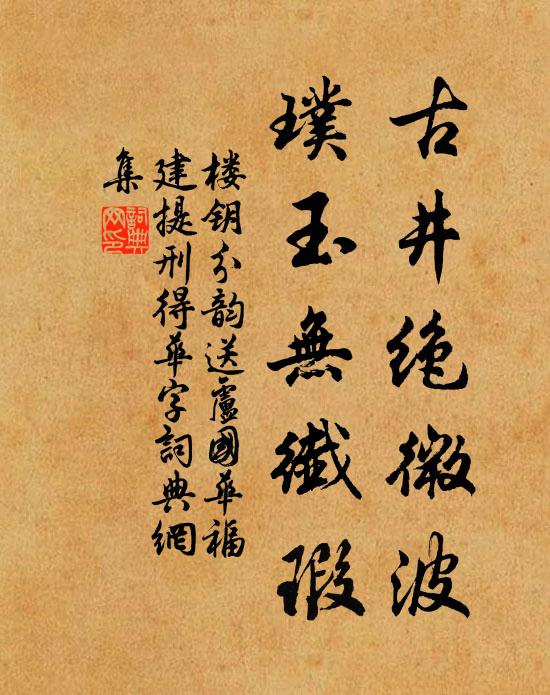 古井绝微波
璞玉無纖瑕
楼钥分韵送盧國華福
建提刑得華字詞典網
集
詞典網印